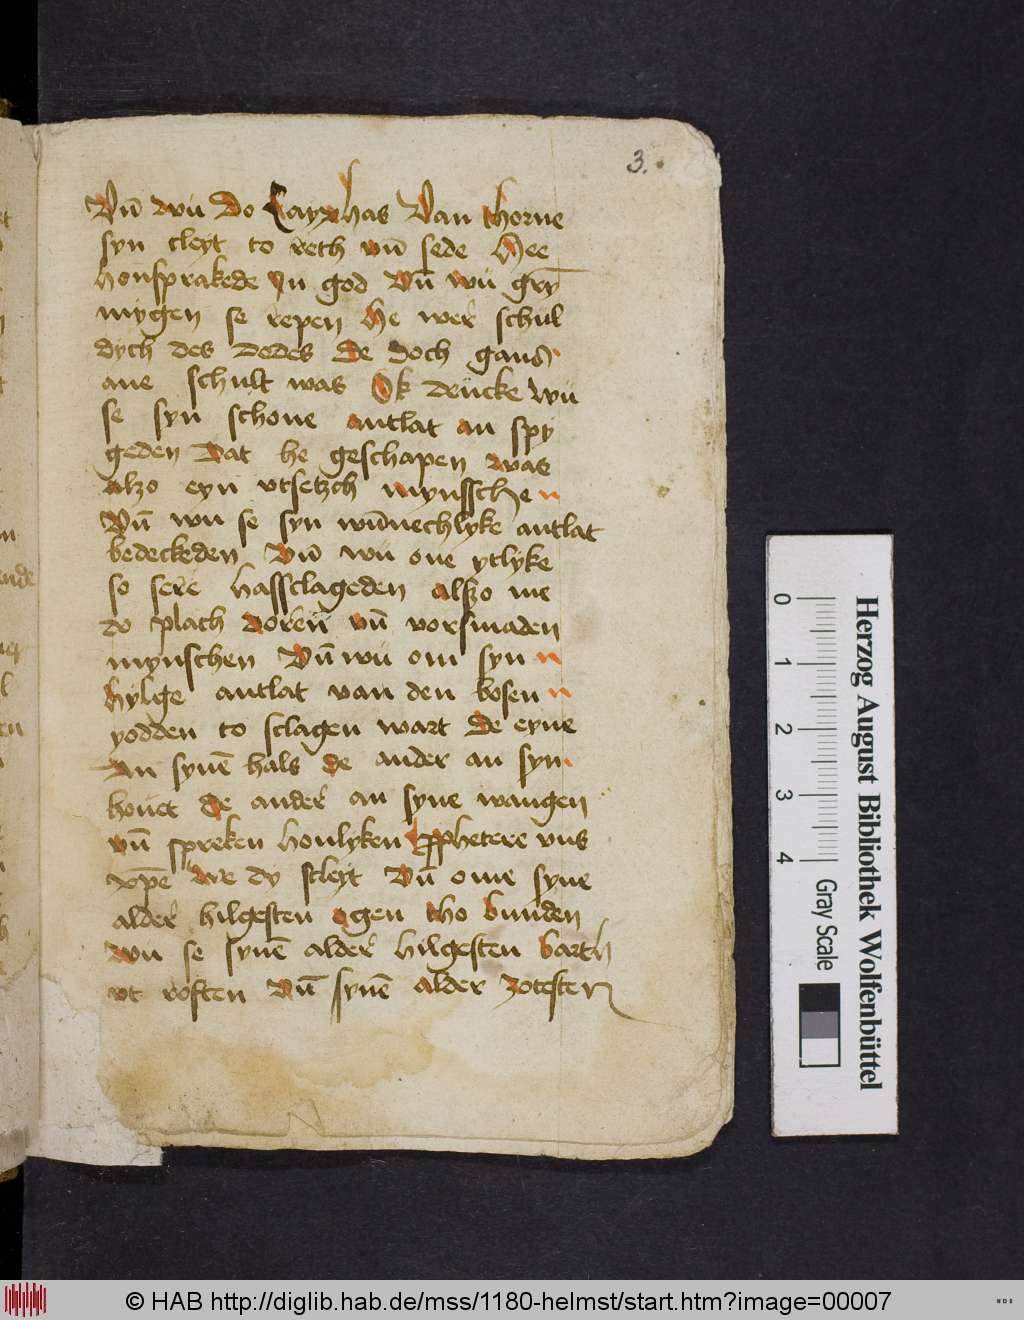 3.
Vn̄ wu do Cayphas Van thorne
syn cleyt to reth vn̄ sede hee
honsprakede In god Vn̄ wu gry
mygen se repen He wer schul
dych des dodes de doch gans
ane schult was Ok dencke wu
se syn schone antlat an spy
geden Dat he geschapen was
alzo eyn vtsetzch mynssche
Vn̄ wu se syn wūnechlyke antlat
bedeckeden Vn̄ wu one ytlyke
so sere hassclageden alszo me
do plach doren vn̄ vorsmaden
mynschen Vn̄ wu om syn
hylge antlat van den bosen
yodden to sclagen wart De eyne
An synē hals de ander an syn
houet de ander an syne wangen
vn̄ spreken honlyken Pphetere vns
xp̄e we dy scleyt Vn̄ ome syne
alder hilgesten ogen tho bunden
wu se synē alder hilgesten barth
vt roften Vn̄ synē alder zotesten
0
1
2
3
4
Gray Scale
Herzog August Bibliothek Wolfenbüttel
© HAB http://diglib.hab.de/mss/1180-helmst/start.htm?image=00007